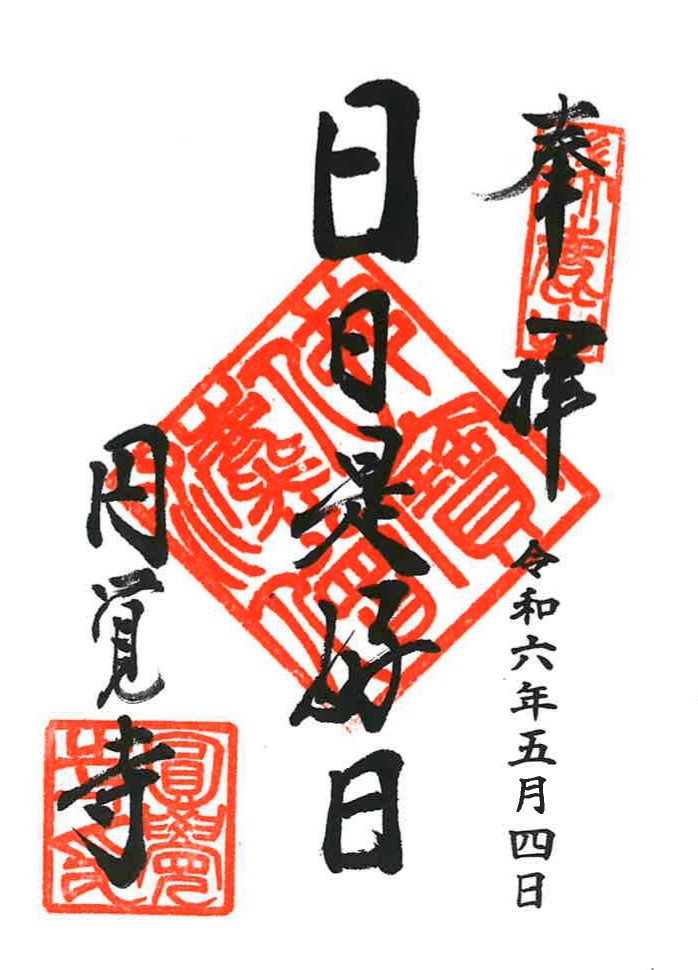 奉拝
令和六年五月四日
日日是好日
円覚寺